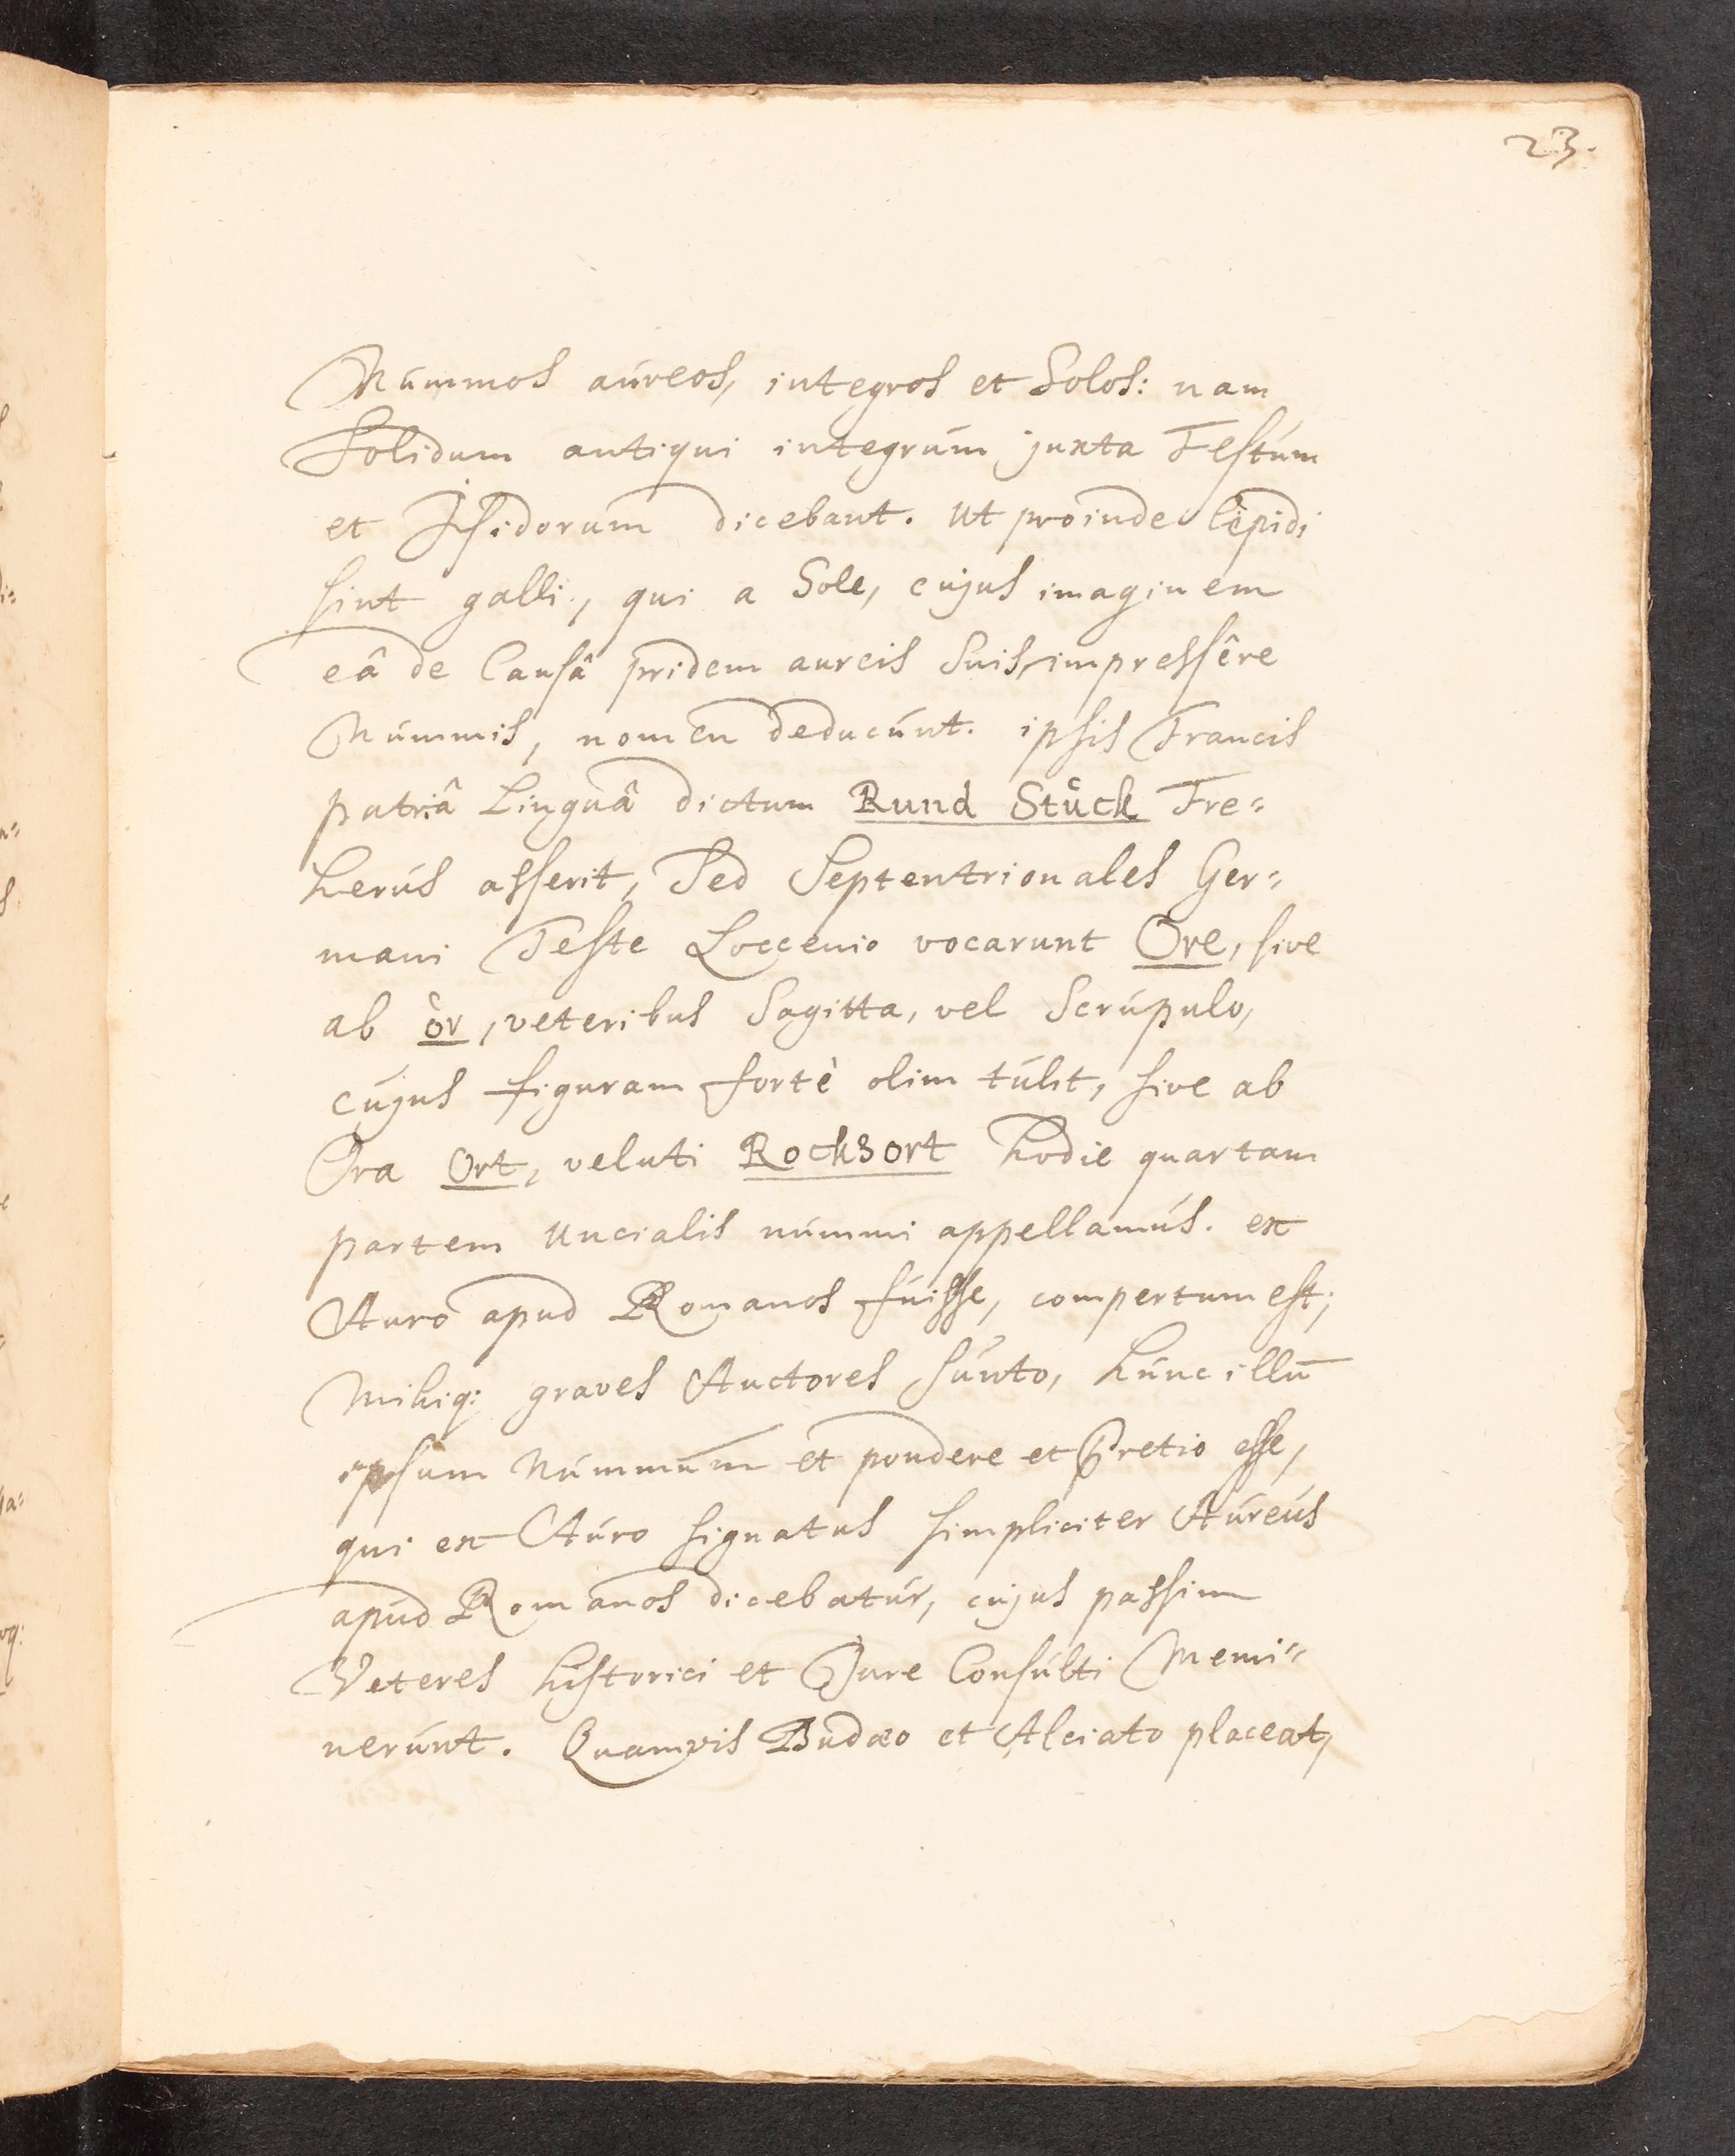 23.
Nummos aureos, integros et Solos: nam
Solidum antiqui integrum juxta Festum
et Isidorum dicebant. Ut proinde lepidi
sint galli, qui a Sole, cujus imaginem
eâ de Causâ pridem aureis Suis impressêre
Nummis, nomen deducunt. ipsis Francis
patriâ Linguâ dictum Rund Stück Fre=
herus asserit, Sed Septentrionales Ger=
mani Teste Loccenio vocarunt Öre, sive
ab ör, veteribus Sagitta, vel Scrupulo,
cujus figuram fortè olim tulit, sive ab
Ora Ort, veluti Rocksort hodie quartam
partem Uncialis nummi appellamus. ex
Auro apud Romanos fuisse, compertum est;
Mihiq; graves Auctores sunto, hunc illū
ipsum Nummum et pondere et Pretio esse,
qui ex Auro signatus simpliciter Aureus
apud Romanos dicebatur, cujus passim
Veteres historici et Jure Consulti Memi=
nerunt. Quamvis Budæo et Alciato placeat,